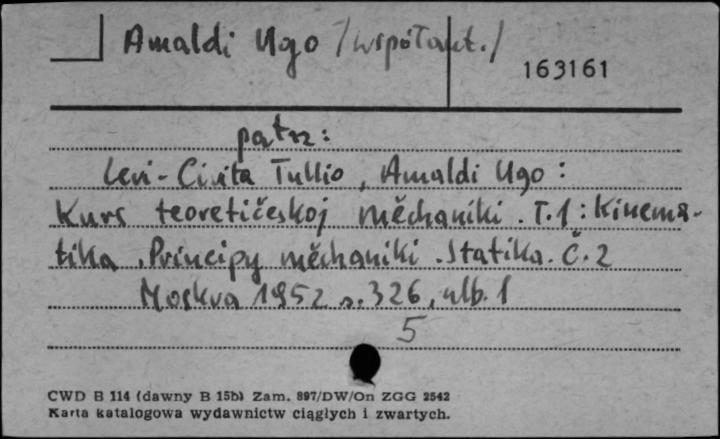 Amaldi Ugo /współaut./
163161
patrz:
Levi-Civita Tullio, Amaldi Ugo:
Kurs teoretičeskoj měchaniki. T.1: Kinema-
tika. Principy měchaniki. Statika. Č. 2
Moskva 1952 s. 326, nlb. 1
5
CWD B 114 (dawny B 15b) Zam. 897/DW/On ZGG 2542
Karta katalogowa wydawnictw ciągłych i zwartych.